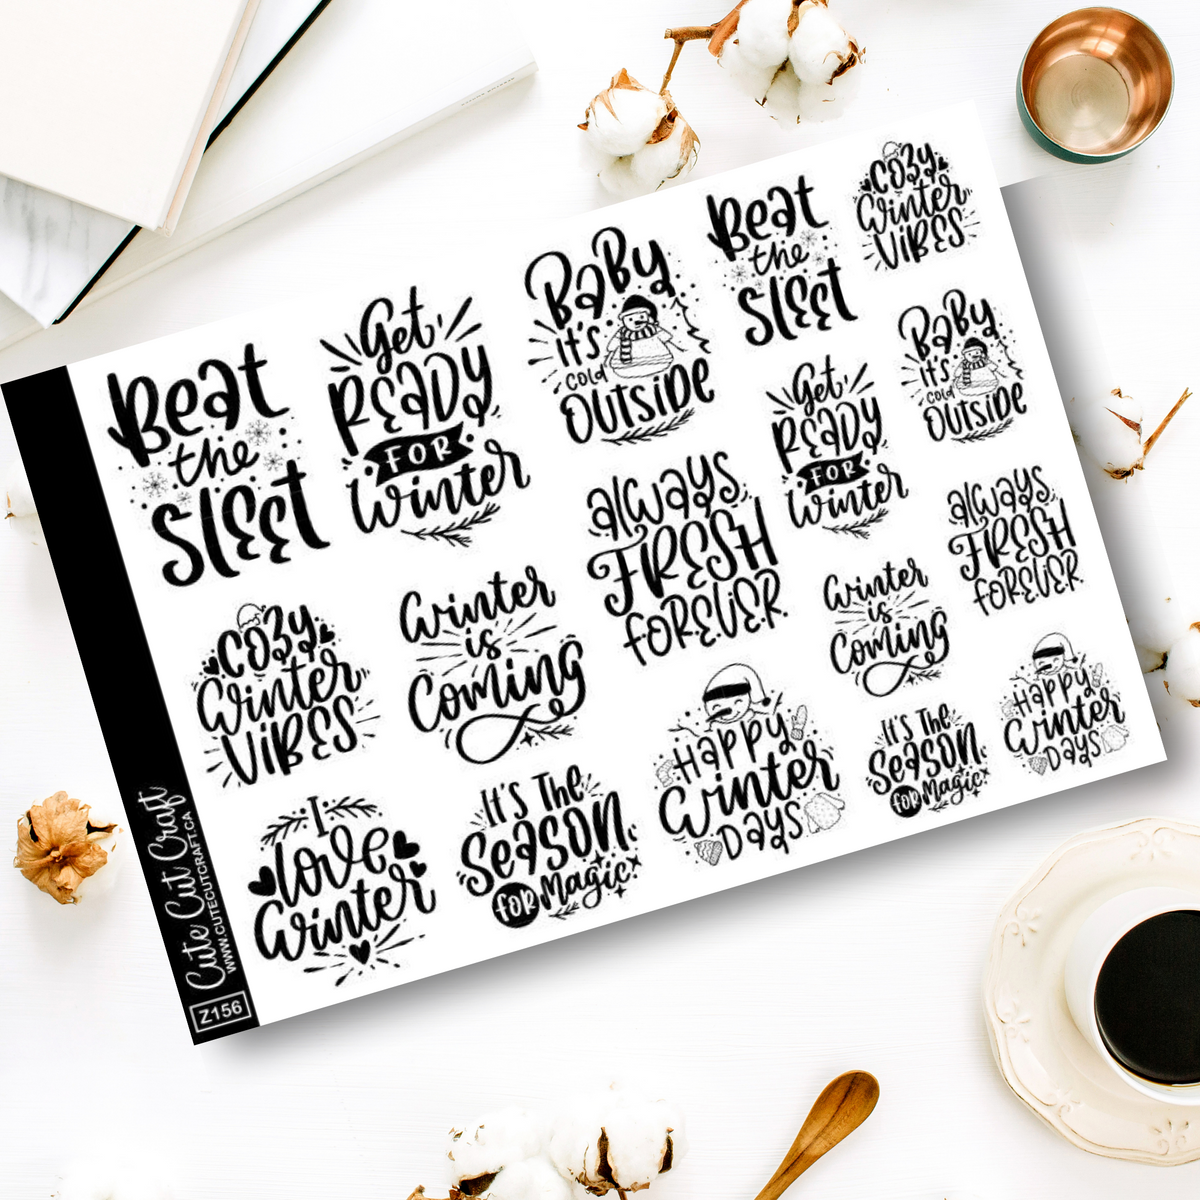 Beat
the
Sleet
Get
READY
FOR
Winter
BaBy
It's
cold
OUTSIDE
Beat
the
Sleet
COZY
Winter
VIBES
COZY
Winter
VIBES
Winter
is
Coming
always
FRESH
FOREVER
Get
READY
FOR
Winter
BaBy
It's
cold
OUTSIDE
I
love
Winter
It's The
Season
FOR Magic
Happy
Winter
Days
Winter
is
Coming
always
FRESH
FOREVER
It's The
Season
FOR Magic
Happy
Winter
Days
Cute Cut Craft
WWW.CUTECUTCRAFT.CA
Z156